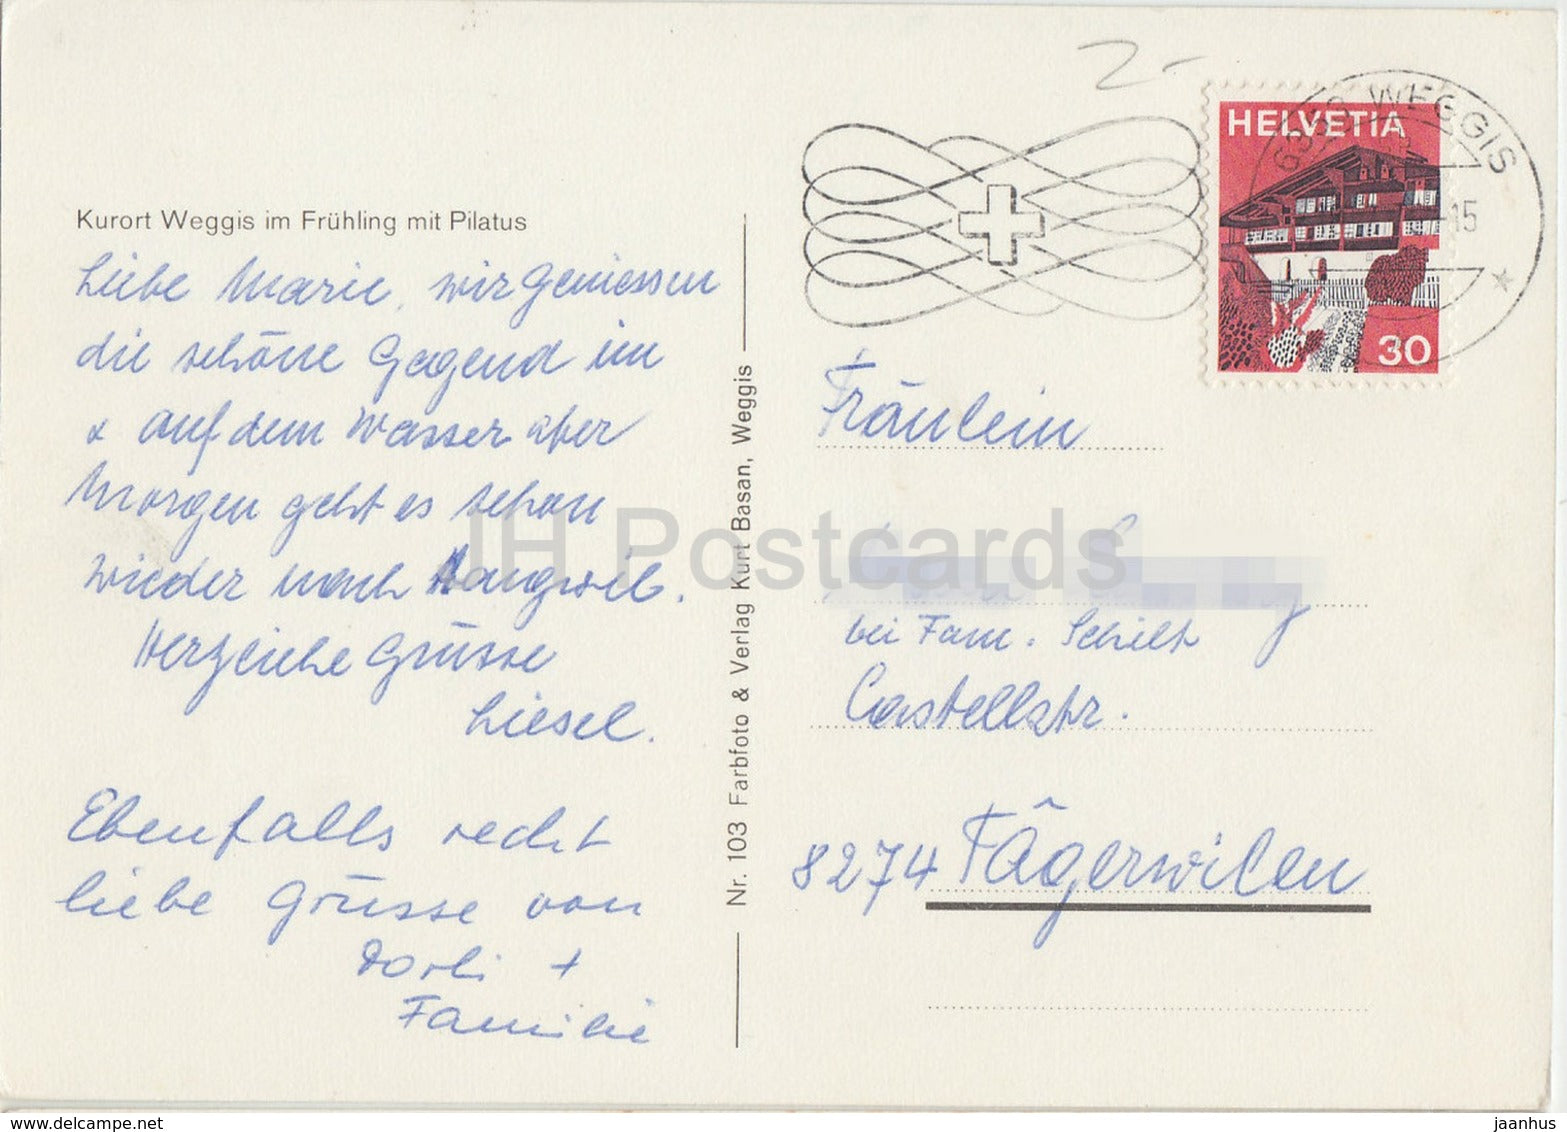 2.-
HELVETIA
30
6353 WEGGIS
15
Kurort Weggis im Frühling mit Pilatus
Liebe Marie, wir geniessen
die schöne Gegend im
+ auf dem Wasser aber
Morgen geht es schon
wieder nach Langwil.
Herzliche Grüsse
Liesel.
Ebenfalls recht
liebe Grüsse von
Dorli +
Familie
Nr. 103 Farbfoto & Verlag Kurt Basan, Weggis
Fräulein
bei Fam. Schilt
Castellstr.
8274 Tägerwilen
JH Postcards
delcampe.net
jaanhus